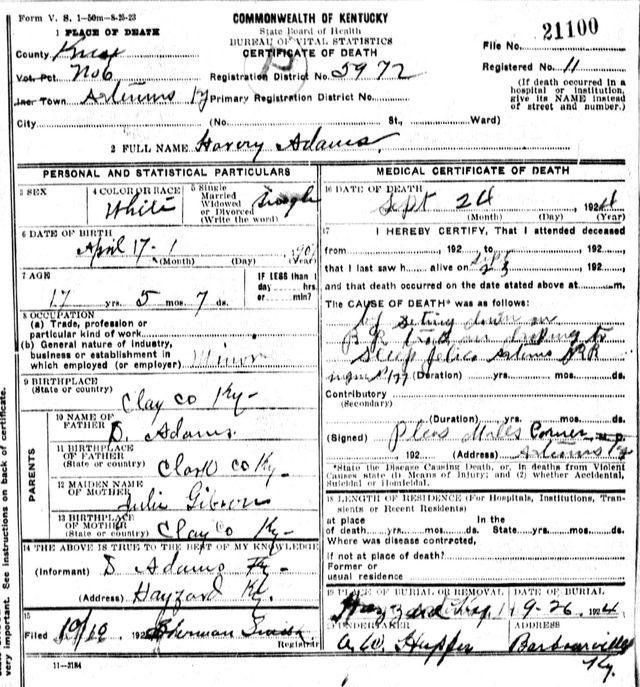 Form V. S. 1-50m-8-25-23
COMMONWEALTH OF KENTUCKY
State Board of Health
BUREAU OF VITAL STATISTICS
CERTIFICATE OF DEATH
File No. 21100
Registered No. 11
(If death occurred in a hospital or institution, give its NAME instead of street and number.)
1 PLACE OF DEATH
County Knox
Vot. Pct. No 6
Registration District No. 5972
Inc. Town Artemus Ky Primary Registration District No.
City (No. St., Ward)
2 FULL NAME Harvey Adams
PERSONAL AND STATISTICAL PARTICULARS
3 SEX
4 COLOR OR RACE White
5 Single Married Widowed or Divorced (Write the word) Single
6 DATE OF BIRTH
April 17-1 190
(Month) (Day) (Year)
7 AGE
17 yrs. 5 mos. 7 ds.
IF LESS than 1 day hrs. or min?
8 OCCUPATION
(a) Trade, profession or particular kind of work
(b) General nature of industry, business or establishment in which employed (or employer) Minor
9 BIRTHPLACE
(State or country) Clay co Ky-
PARENTS
10 NAME OF FATHER D. Adams
11 BIRTHPLACE OF FATHER
(State or country) Clark co Ky-
12 MAIDEN NAME OF MOTHER Julie Gibson
13 BIRTHPLACE OF MOTHER
(State or country) Clay Co Ky-
14 THE ABOVE IS TRUE TO THE BEST OF MY KNOWLEDGE
(Informant) D Adams Ky-
(Address) Hayzard Ky.
15
Filed 10/10 192 Sherman
Registrar
11-3184
MEDICAL CERTIFICATE OF DEATH
16 DATE OF DEATH
Sept 24 1924
(Month) (Day) (Year)
17 I HEREBY CERTIFY, That I attended deceased
from 192 , to 192 ,
that I last saw h alive on Sept 23 192 ,
and that death occurred on the date stated above at m.
The CAUSE OF DEATH* was as follows:
by seting down on
R R track and
Sleep Artemus RR
(Duration) yrs. mos. ds.
Contributory
(Secondary)
(Duration) yrs. mos. ds.
(Signed) Pleas Miles Corner M.D.
192 (Address) Artemus Ky
*State the Disease Causing Death, or, in deaths from Violent Causes state (1) Means of Injury; and (2) whether Accidental, Suicidal or Homicidal.
18 LENGTH OF RESIDENCE (For Hospitals, Institutions, Transients or Recent Residents)
at place of death yrs. mos. ds. In the State yrs. mos. ds.
Where was disease contracted,
if not at place of death?
Former or usual residence
19 PLACE OF BURIAL OR REMOVAL DATE OF BURIAL
Hayzard 9-26 1924
20 UNDERTAKER ADDRESS
Barbourville Ky.
very important. See instructions on back of certificate.